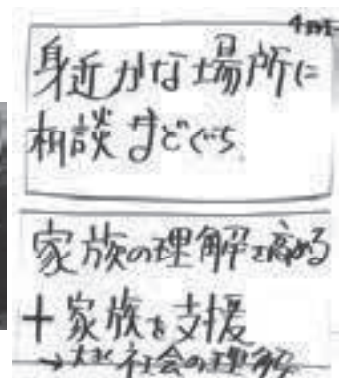 4班
身近かな場所に
相談まどぐち
家族の理解を高める
+家族を支援
→ 社会の理解